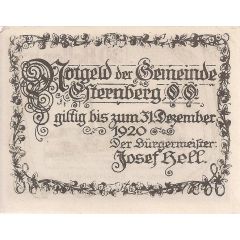 Notgeld der Gemeinde
Sternberg O.Ö.
giltig bis zum 31. Dezember
1920
Der Bürgermeister:
Josef Hell.